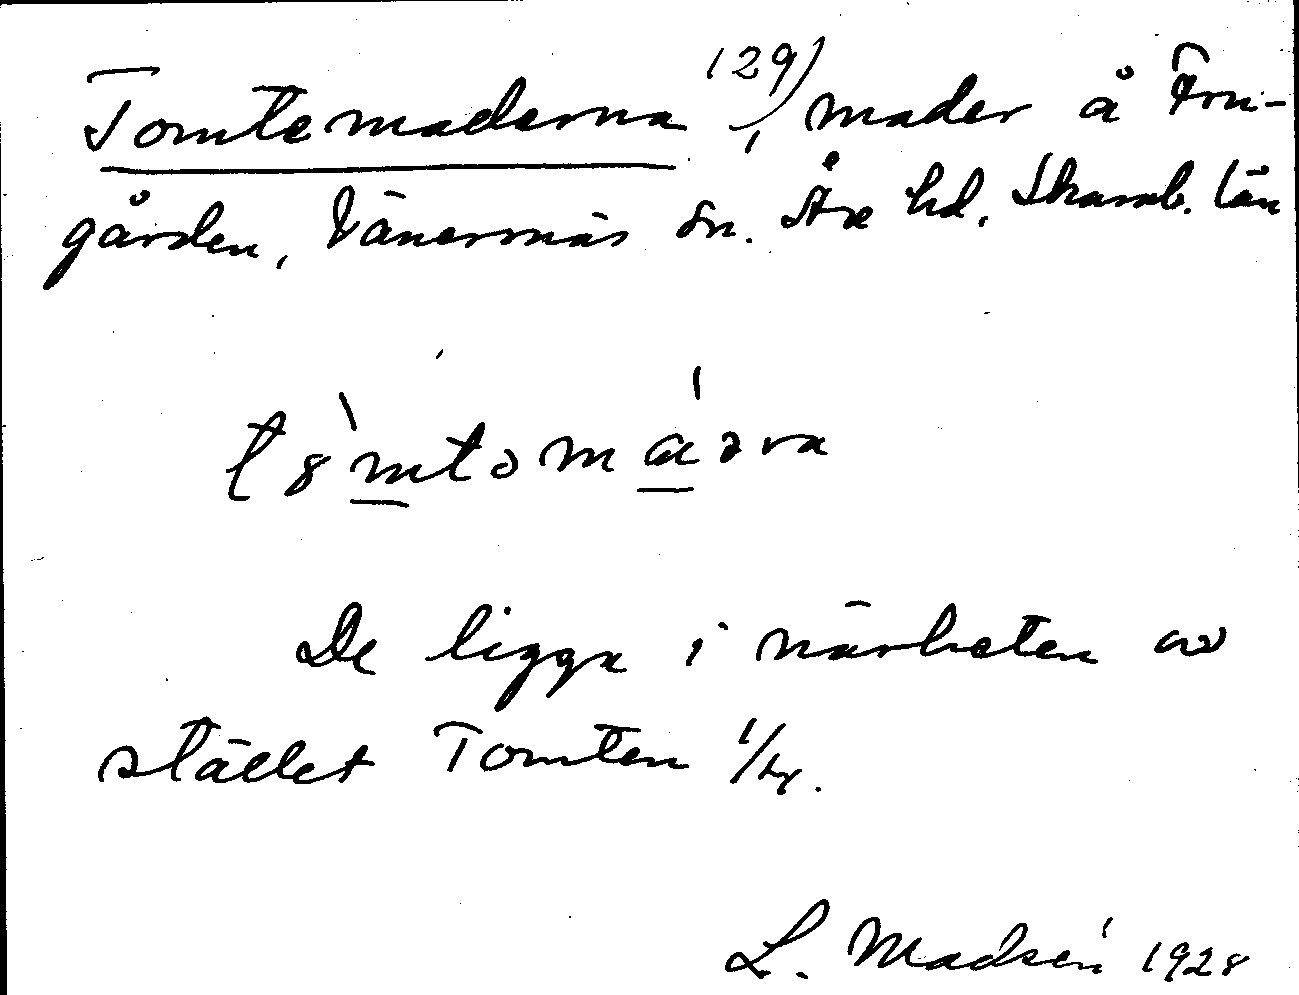 Tomtemaderna 129), mader å Fru-
gården, Vänersnäs sn. Åse hd. Skarab. län
De ligga i närheten av
stället Tomten 1/4.
L. Madsén 1928